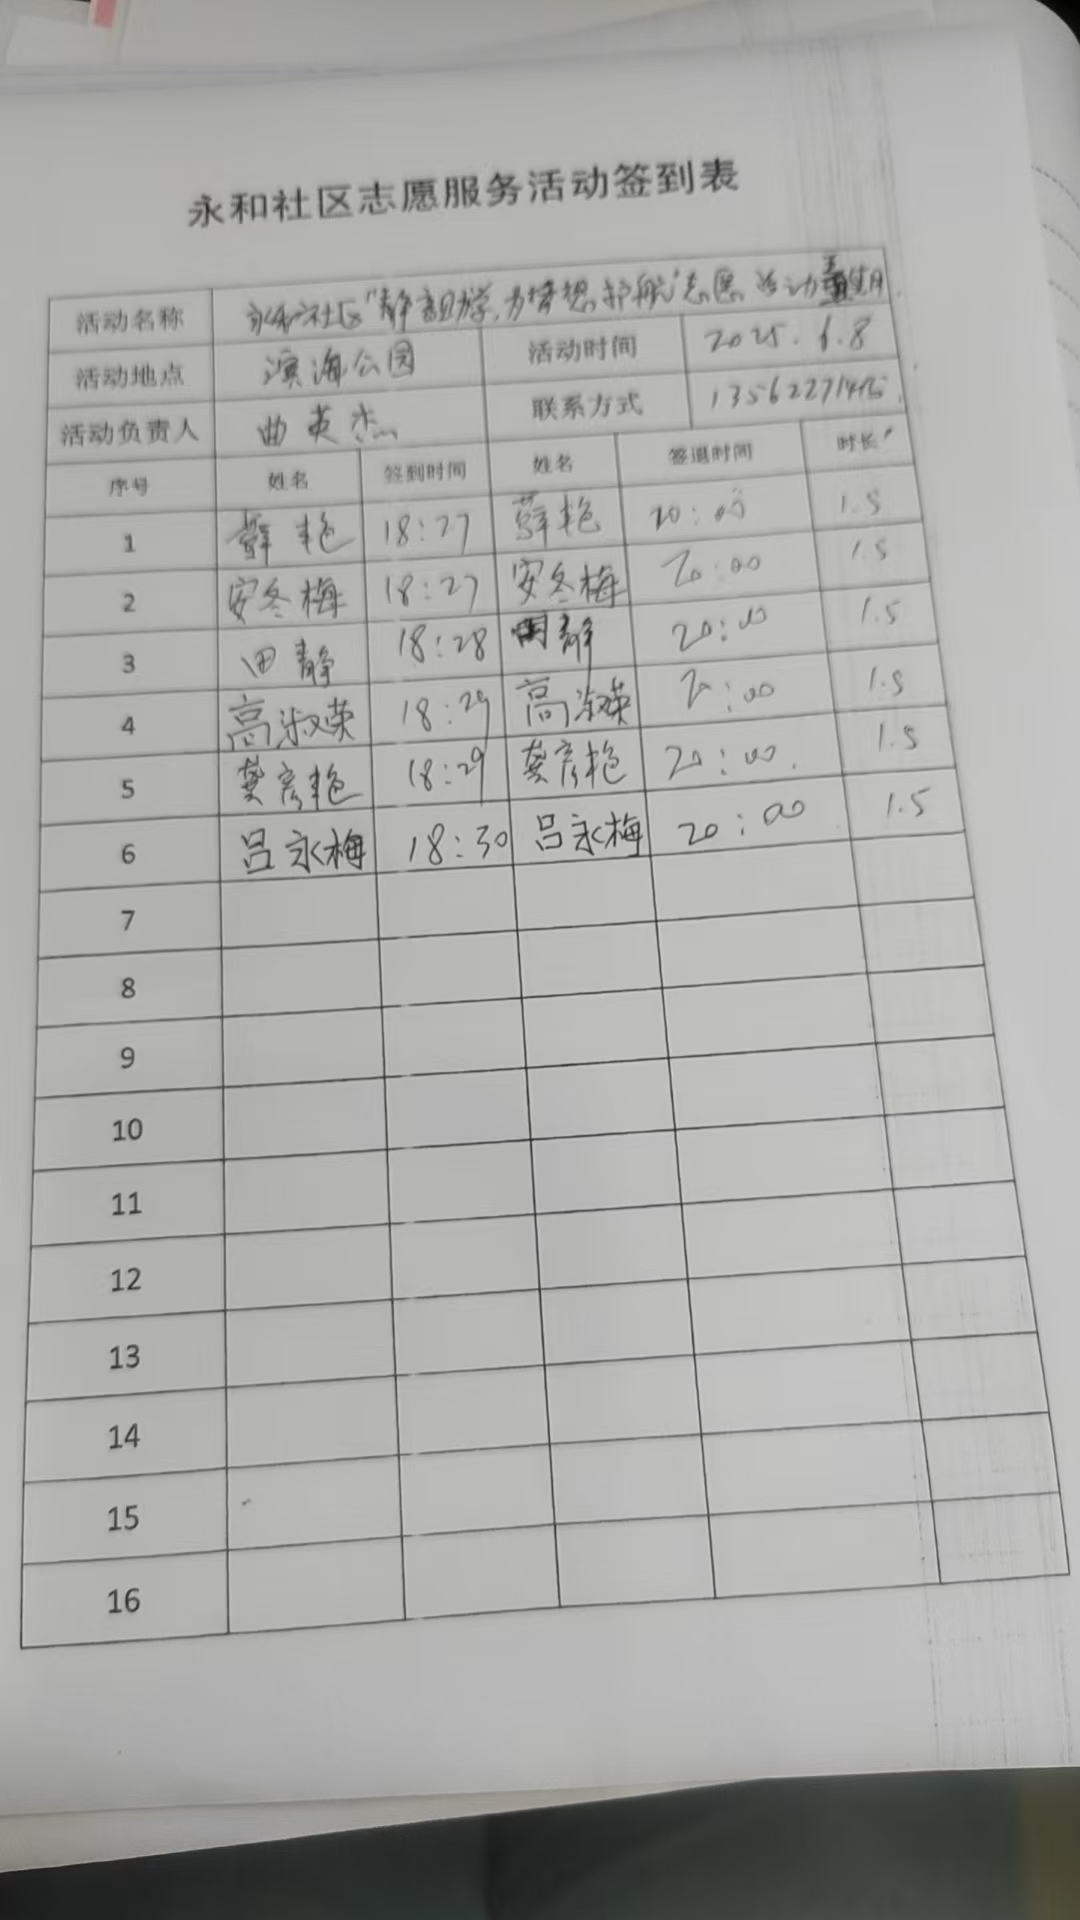 永和社区志愿服务活动签到表
活动名称 永和社区"静音助学,为梦想护航"志愿活动
活动地点 滨海公园 活动时间 2025.6.8
活动负责人 曲英杰 联系方式
序号 姓名 签到时间 姓名 签退时间 时长
1 薛艳 18:27 薛艳 20:00 1.5
2 安冬梅 18:27 安冬梅 20:00 1.5
3 田静 18:28 田静 20:00 1.5
4 高淑英 18:29 高淑英 20:00 1.5
5 龚彦艳 18:29 龚彦艳 20:00 1.5
6 吕永梅 18:30 吕永梅 20:00 1.5
7
8
9
10
11
12
13
14
15
16